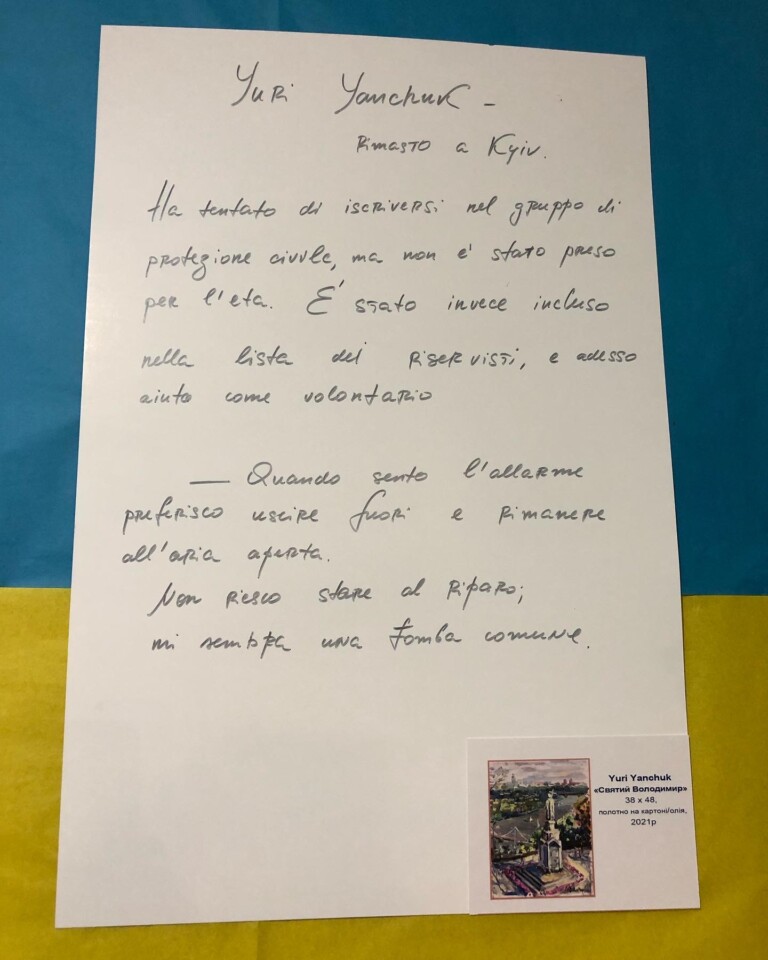 Yuri Yanchuk -
rimasto a Kyiv.
Ha tentato di iscriversi nel gruppo di
protezione civile, ma non e' stato preso
per l'eta. E' stato invece incluso
nella lista dei riservisti, e adesso
aiuto come volontario
— Quando sento l'allarme
preferisco uscire fuori e rimanere
all'aria aperta.
Non riesco stare al riparo;
mi sembra una tomba comune.
Yuri Yanchuk
«Святий Володимир»
38 x 48,
полотно на картоні/олія,
2021р